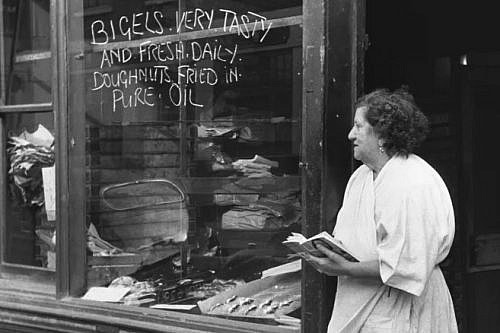 BIGELS. VERY. TASTY
AND. FRESH. DAILY.
DOUGHNUTS. FRIED IN.
PURE. OIL